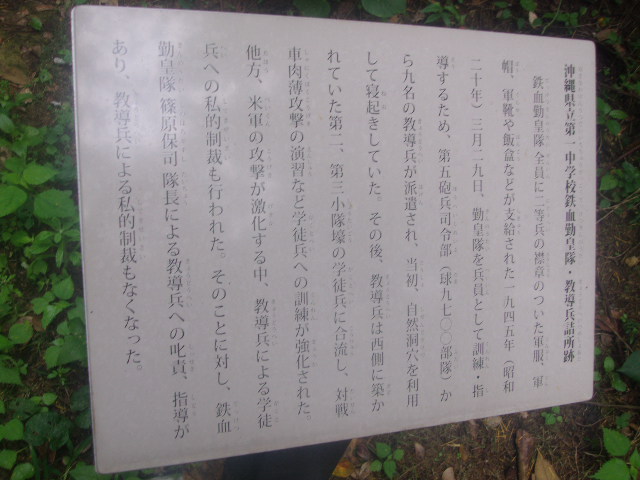 沖縄県立第一中学校鉄血勤皇隊・教導兵詰所跡
鉄血勤皇隊 全員に二等兵の襟章のついた軍服、軍
帽、軍靴や飯盒などが支給された一九四五年（昭和
二十年）三月二九日、勤皇隊を兵員として訓練・指
導するため、第五砲兵司令部（球九七〇〇部隊）か
ら九名の教導兵が派遣され、当初、自然洞穴を利用
して寝起きしていた。その後、教導兵は西側に築か
れていた第二、第三小隊壕の学徒兵に合流し、対戦
車肉薄攻撃の演習など学徒兵への訓練が強化された。
他方、米軍の攻撃が激化する中、教導兵による学徒
兵への私的制裁も行われた。そのことに対し、鉄血
勤皇隊 篠原保司 隊長による教導兵への叱責、指導が
あり、教導兵による私的制裁もなくなった。